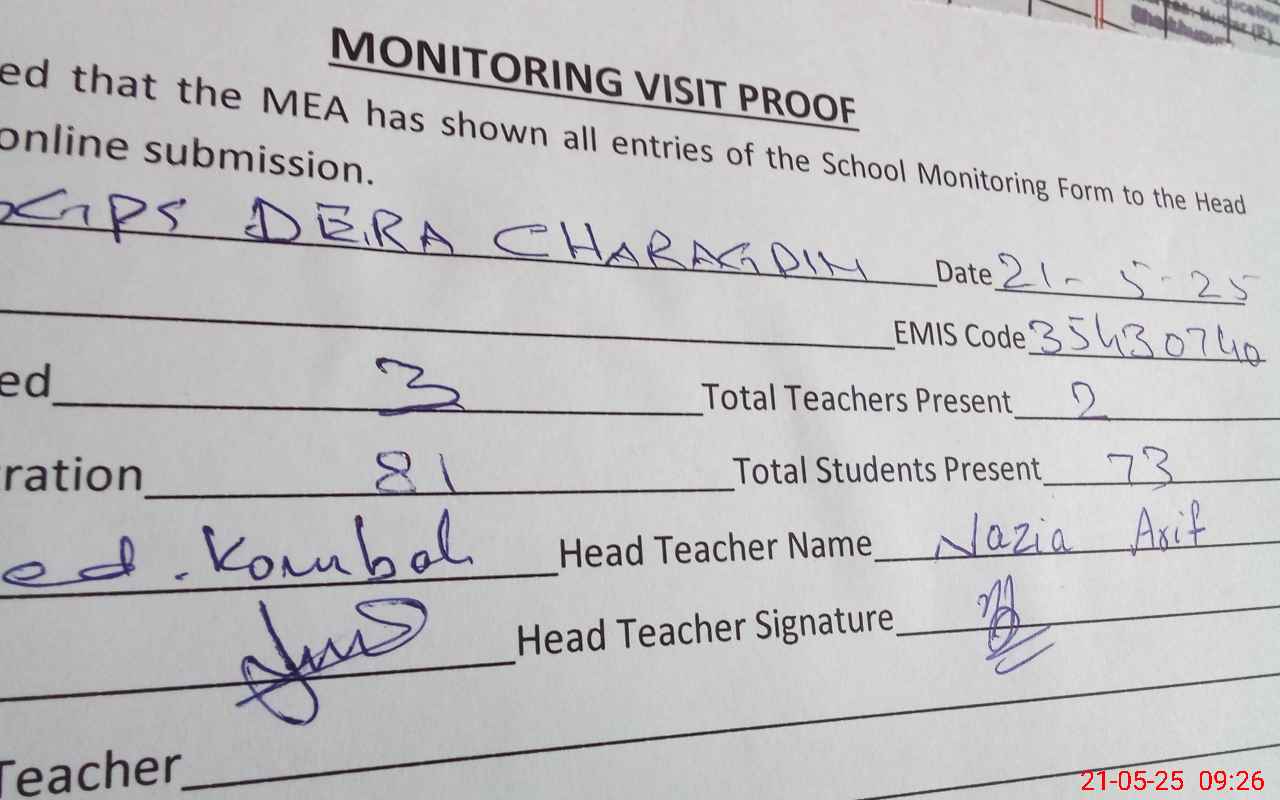 MONITORING VISIT PROOF
ed that the MEA has shown all entries of the School Monitoring Form to the Head
online submission.
GPS DERA CHARAGDIN Date 21-5-25
EMIS Code 35430740
ed 3 Total Teachers Present 2
ration 81 Total Students Present 73
ed. Head Teacher Name Nazia Arif
Head Teacher Signature
Teacher
21-05-25 09:26